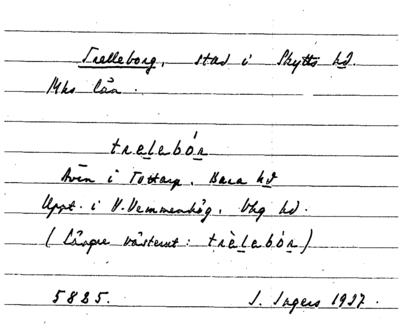 Trelleborg, stad i Skytts hd.
Mhs län.
trelebór
Även i Tottarp, Bara hd
Uppt. i V. Vemmenhög, Vhg hd.
(Längre västerut: trèlebór)
5825. I. Ingers 1937.